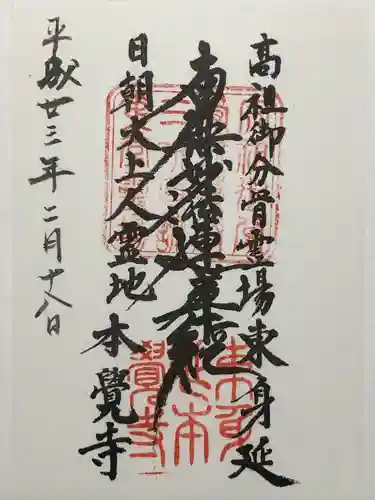 高祖御分骨霊場東身延
南無妙法蓮華経
日朝大上人霊地
本覺寺
平成廿三年二月十八日